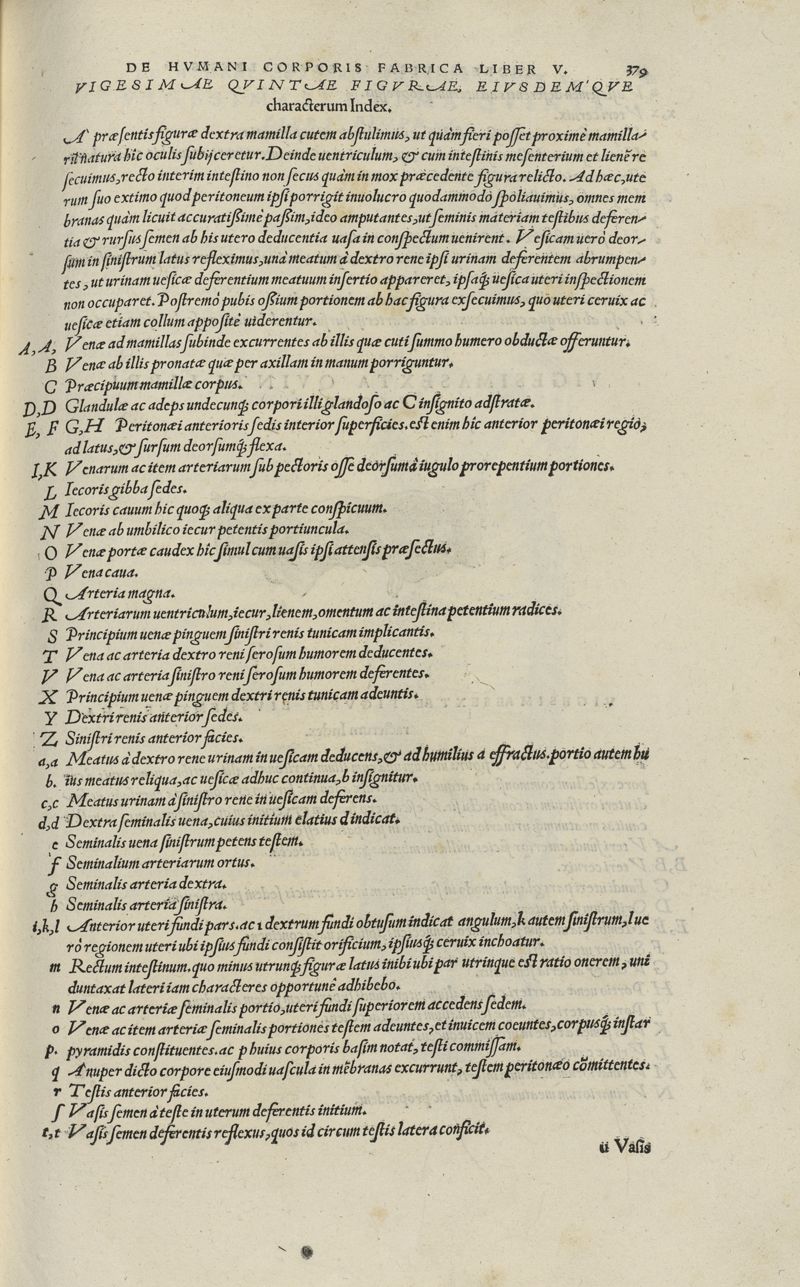 DE HVMANI CORPORIS FABRICA LIBER V. 379
VIGESIMAE QVINTAE FIGVRAE, EIVSDEM'QVE
characterum Index.
A præsentis figuræ dextra mamilla cutem abstulimus, ut quàm fieri posset proximè mamilla⸗
rũ natura hic oculis subijceretur. Deinde uentriculum, & cum intestinis mesenterium et lienẽ re
secuimus, recto interim intestino non secus quàm in mox præcedente figura relicto. Ad hæc, ute
rum suo extimo quod peritoneum ipsi porrigit inuolucro quodammodò spoliauimus, omnes mem
branas quàm licuit accuratißimè paßim, ideo amputantes, ut seminis materiam testibus deferen⸗
tia & rursus semen ab his utero deducentia uasa in conspectum uenirent. Vesicam uerò deor⸗
sum in sinistrum latus refleximus, unà meatum à dextro rene ipsi urinam deferentem abrumpen⸗
tes, ut urinam uesicæ deferentium meatuum insertio appareret, ipsaq́; uesica uteri inspectionem
non occuparet. Postremò pubis oßium portionem ab hac figura exsecuimus, quò uteri ceruix ac
uesicæ etiam collum appositè uiderentur.
A, A, Venæ ad mamillas subinde excurrentes ab illis quæ cuti summo humero obductæ offeruntur.
B Venæ ab illis pronatæ quæ per axillam in manum porriguntur.
C Præcipuum mamillæ corpus.
D, D Glandulæ ac adeps undecunq́; corpori illi glandoso ac C insignito adstratæ.
E, F G, H Peritonæi anterioris sedis interior superficies. est enim hic anterior peritonæi regio,
ad latus, & sursum deorsumq́; flexa.
I, K Venarum ac item arteriarum sub pectoris osse deorsum à iugulo prorepentium portiones.
L Iecoris gibba sedes.
M Iecoris cauum hic quoq; aliqua ex parte conspicuum.
N Venæ ab umbilico iecur petentis portiuncula.
O Venæ portæ caudex hic simul cum uasis ipsi attensis præsectus.
P Vena caua.
Q Arteria magna.
R Arteriarum uentriculum, iecur, lienem, omentum ac intestina petentium radices.
S Principium uenæ pinguem sinistri renis tunicam implicantis.
T Vena ac arteria dextro reni serosum humorem deducentes.
V Vena ac arteria sinistro reni serosum humorem deferentes.
X Principium uenæ pinguem dextri renis tunicam adeuntis.
Y Dextri renis anterior sedes.
Z Sinistri renis anterior facies.
a, a Meatus à dextro rene urinam in uesicam deducens, & ad humilius a effractus. portio autem hu
b. ius meatus reliqua, ac uesicæ adhuc continua, b insignitur.
c, c Meatus urinam à sinistro rene in uesicam deferens.
d, d Dextra seminalis uena, cuius initium elatius d indicat.
e Seminalis uena sinistrum petens testem.
f Seminalium arteriarum ortus.
g Seminalis arteria dextra.
h Seminalis arteria sinistra.
i, k, l Anterior uteri fundi pars. ac i dextrum fundi obtusum indicat angulum, k autem sinistrum, l ue
rò regionem uteri ubi ipsius fundi consistit orificium, ipsiusq́; ceruix inchoatur.
m Rectum intestinum. quo minus utrunq; figuræ latus inibi ubi par utrinque est ratio onerem, uni
duntaxat lateri iam characteres opportunè adhibebo.
n Venæ ac arteriæ seminalis portio, uteri fundi superiorem accedens sedem.
o Venæ ac item arteriæ seminalis portiones testem adeuntes, et inuicem coeuntes, corpusq́; instar
p. pyramidis constituentes. ac p huius corporis basim notat, testi commissam.
q A nuper dicto corpore eiusmodi uascula in mẽbranas excurrunt, testem peritonæo cõmittentes.
r Testis anterior facies.
ſ Vasis semen à teste in uterum deferentis initium.
t, t Vasis semen deferentis reflexus, quos id circum testis latera conficit.
ii Vasis